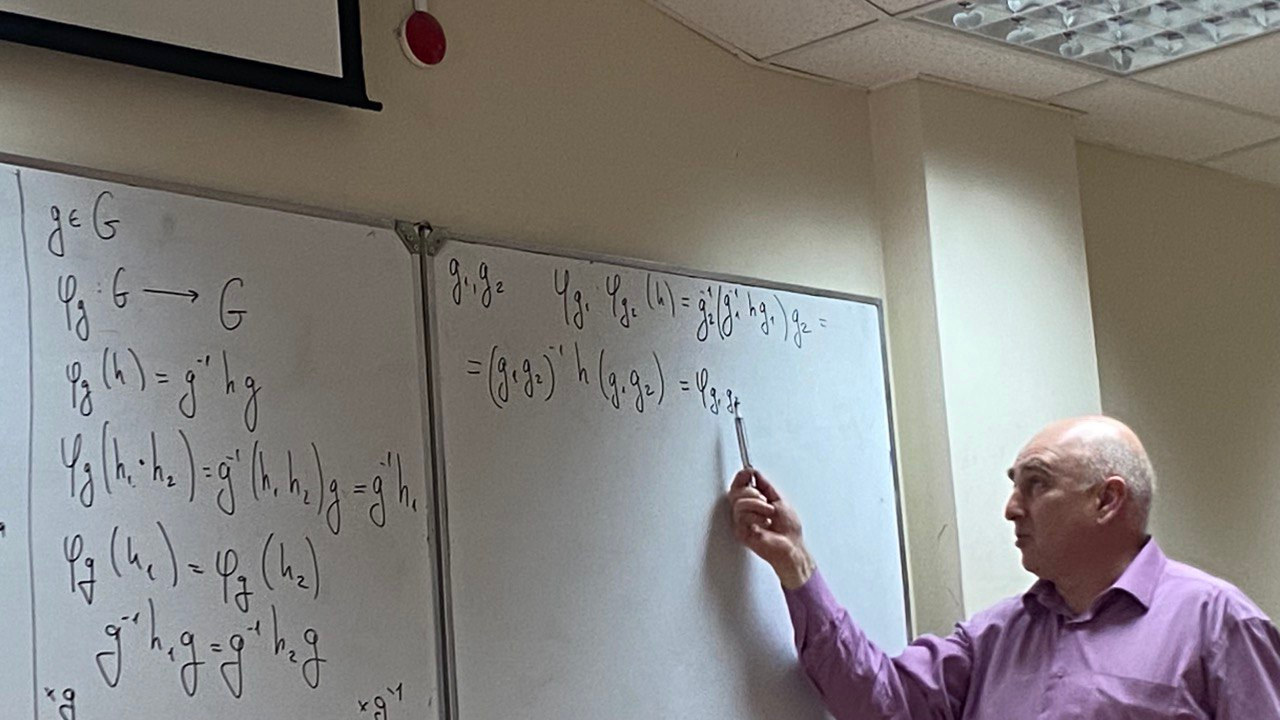 g ∈ G
φ_g : G ⟶ G
φ_g (h) = g⁻¹ h g
φ_g (h₁ · h₂) = g⁻¹ (h₁ h₂) g = g⁻¹ h₁
φ_g (h₁) = φ_g (h₂)
g⁻¹ h₁ g = g⁻¹ h₂ g
×g ×g⁻¹
g₁, g₂ φ_g₁ · φ_g₂ (h) = g₂⁻¹ (g₁⁻¹ h g₁) g₂ =
= (g₁ g₂)⁻¹ h (g₁ g₂) = φ_g₁ g₂